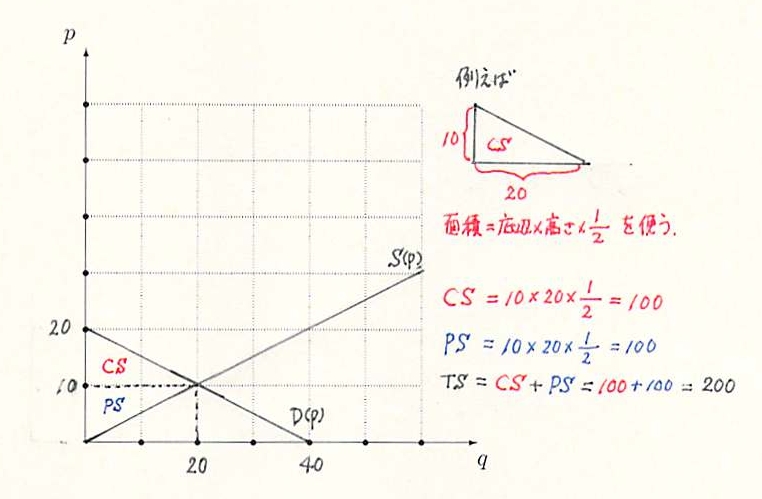 p
20
10
CS
PS
S(p)
D(p)
20
40
q
例えば
10
CS
20
面積=底辺×高さ×1/2 を使う.
CS = 10×20×1/2 = 100
PS = 10×20×1/2 = 100
TS = CS + PS = 100+100 = 200